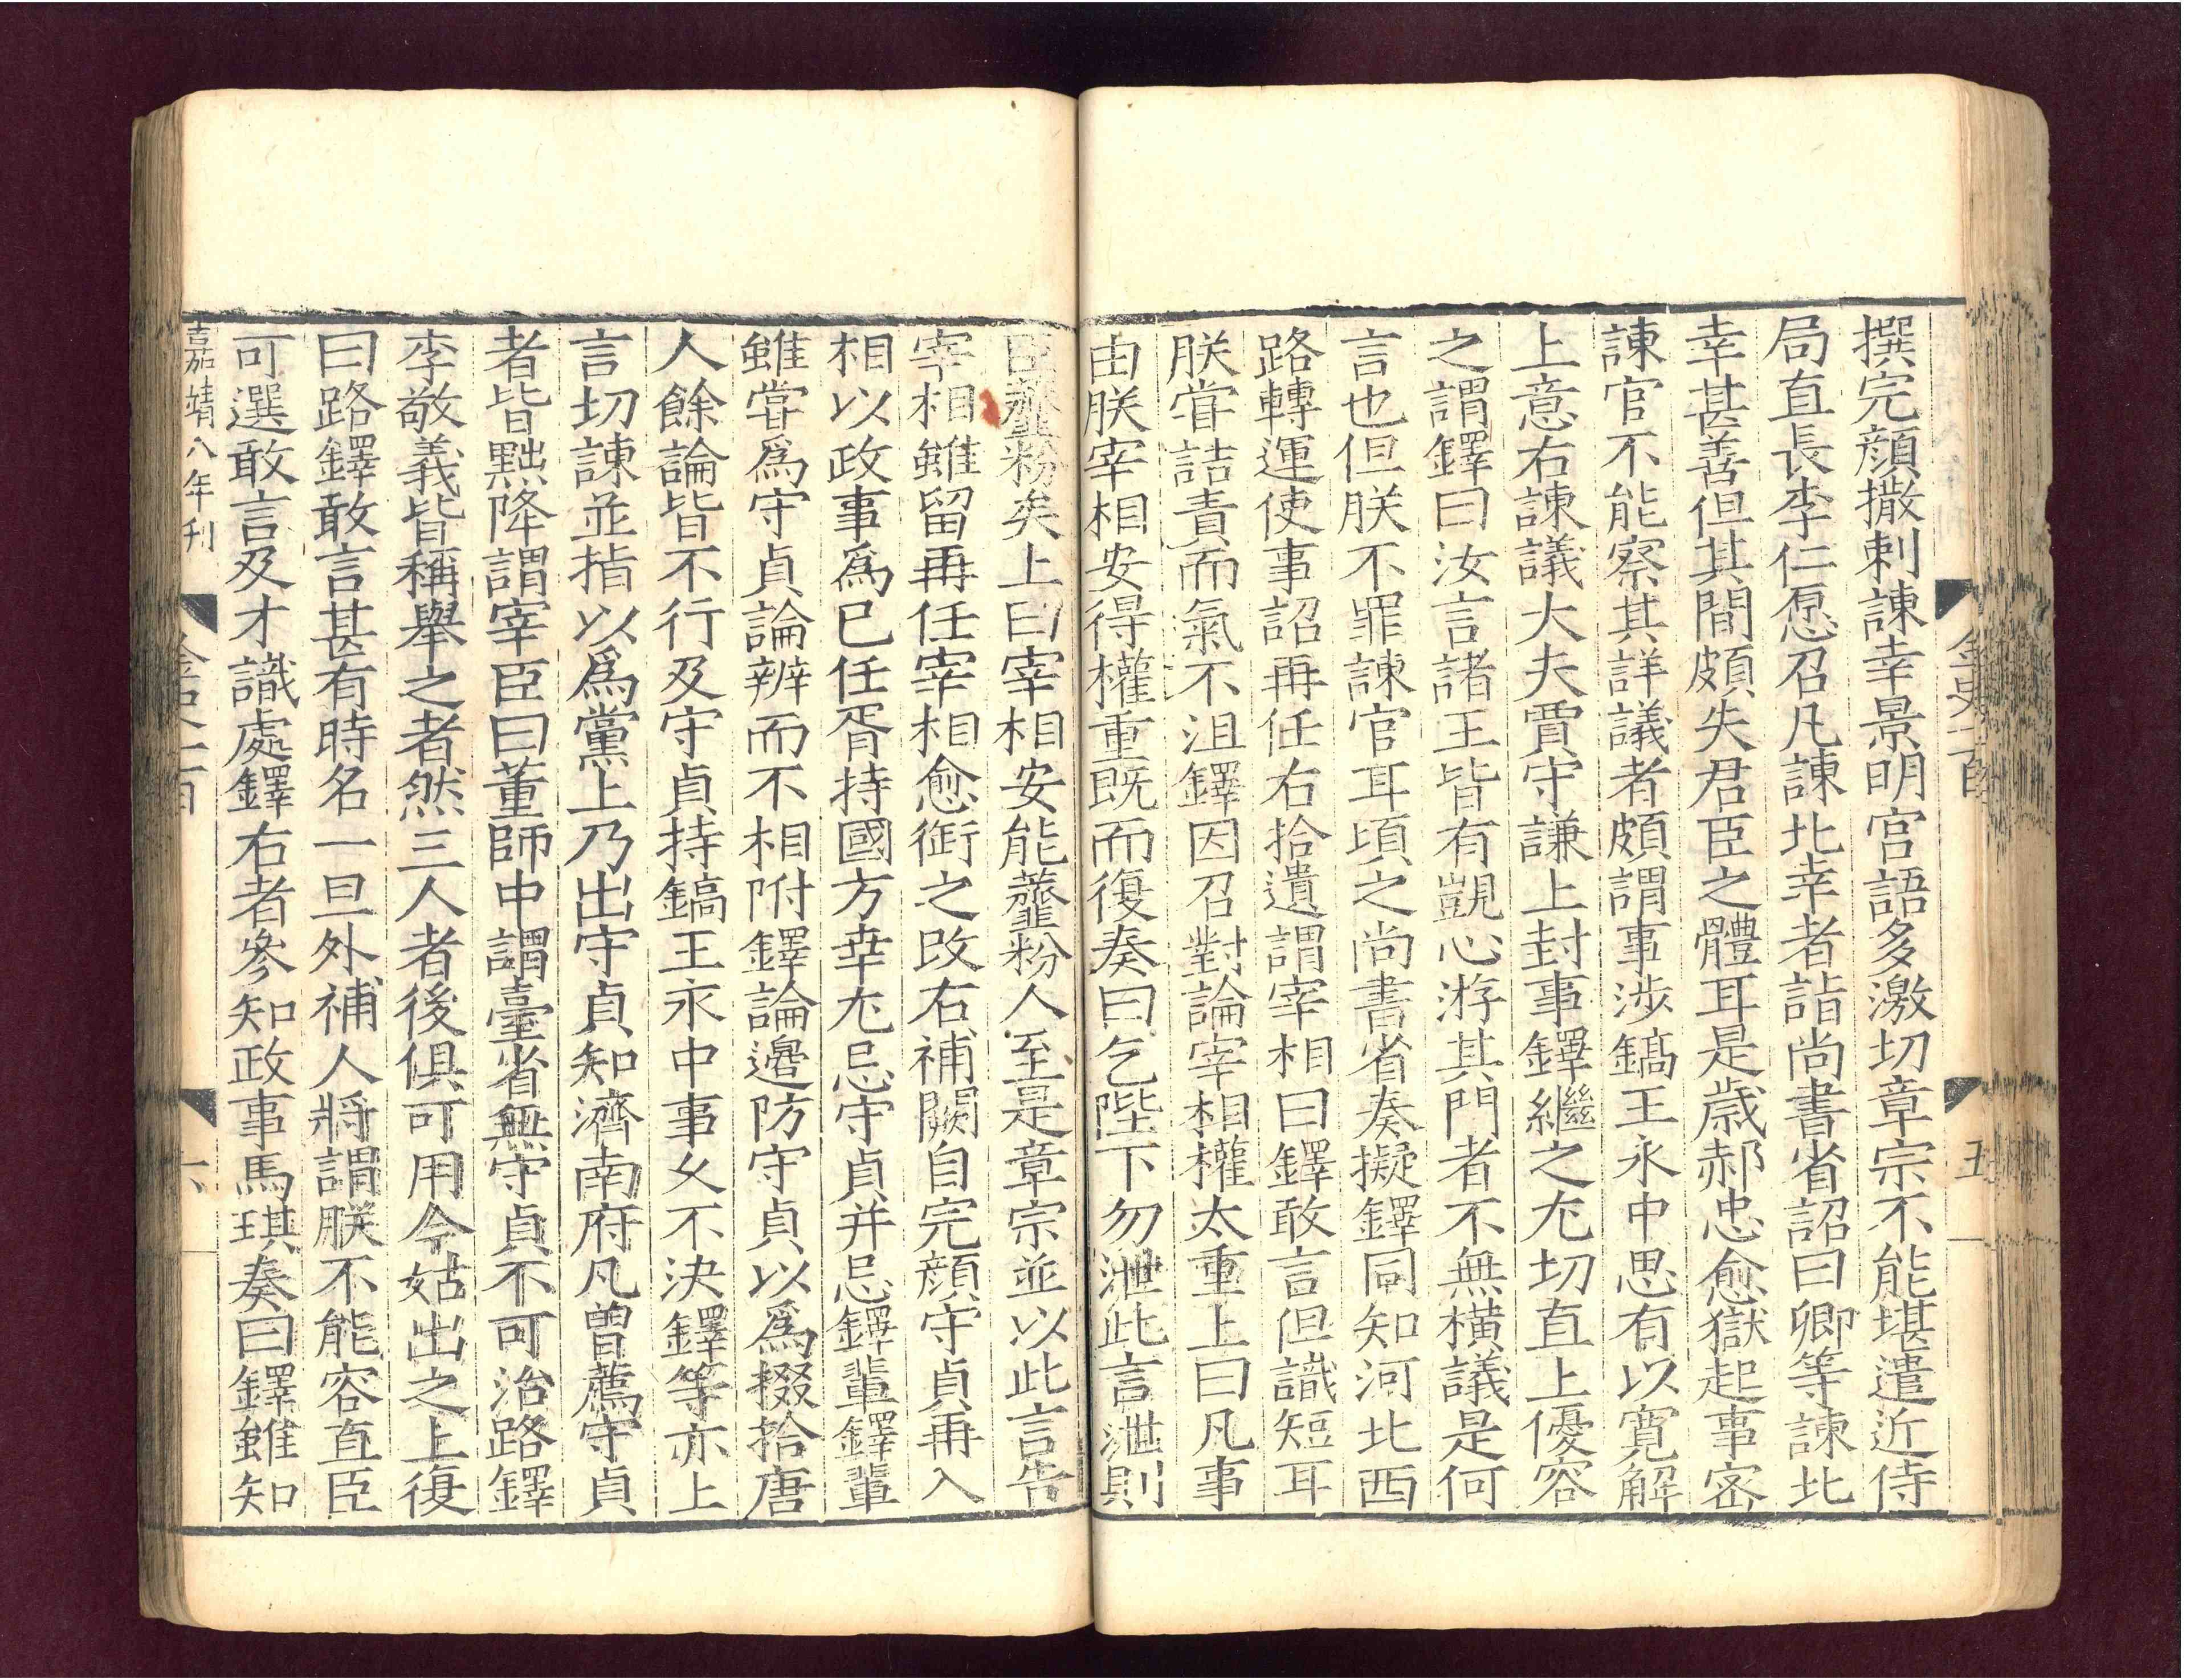 撰完顔撒剌諫幸景明宫語多激切章宗不能堪遣近侍
局直長李仁愿召凡諫北幸者詣尚書省詔曰卿等諫北
幸甚善但其間頗失君臣之體耳是歲郝忠愈獄起事宻
諫官不能察其詳議者頗謂事涉鎬王永中思有以寛解
上意右諫議大夫賈守謙上封事鐸繼之尤切直上優容
之謂鐸曰汝言諸王皆有覬心游其門者不無横議是何
言也但朕不罪諫官耳頃之尚書省奏擬鐸同知河北西
路轉運使事詔再任右拾遺謂宰相曰鐸敢言但識短耳
朕甞詰責而氣不沮鐸因召對論宰相權太重上曰凡事
由朕宰相安得權重既而復奏曰乞陛下勿泄此言泄則
臣虀粉矣上曰宰相安能虀粉人至是章宗並以此言告
宰相雖留再任宰相愈衘之改右補闕自完顔守貞再入
相以政事爲已任胥持國方幸尤忌守貞并忌鐸輩鐸輩
雖甞爲守貞論辨而不相附鐸論邊防守貞以爲掇拾唐
人餘論皆不行及守貞持鎬王永中事乆不決鐸等亦上
言切諫並指以爲黨上乃出守貞知濟南府凡曽薦守貞
者皆黜降謂宰臣曰董師中謂臺省無守貞不可治路鐸
李敬義皆稱舉之者然三人者後俱可用今姑出之上復
曰路鐸敢言甚有時名一旦外補人將謂朕不能容直臣
可選敢言及才識處鐸右者參知政事馬琪奏曰鐸雖知
嘉靖八年刊
金史一百
五
金史一百
六